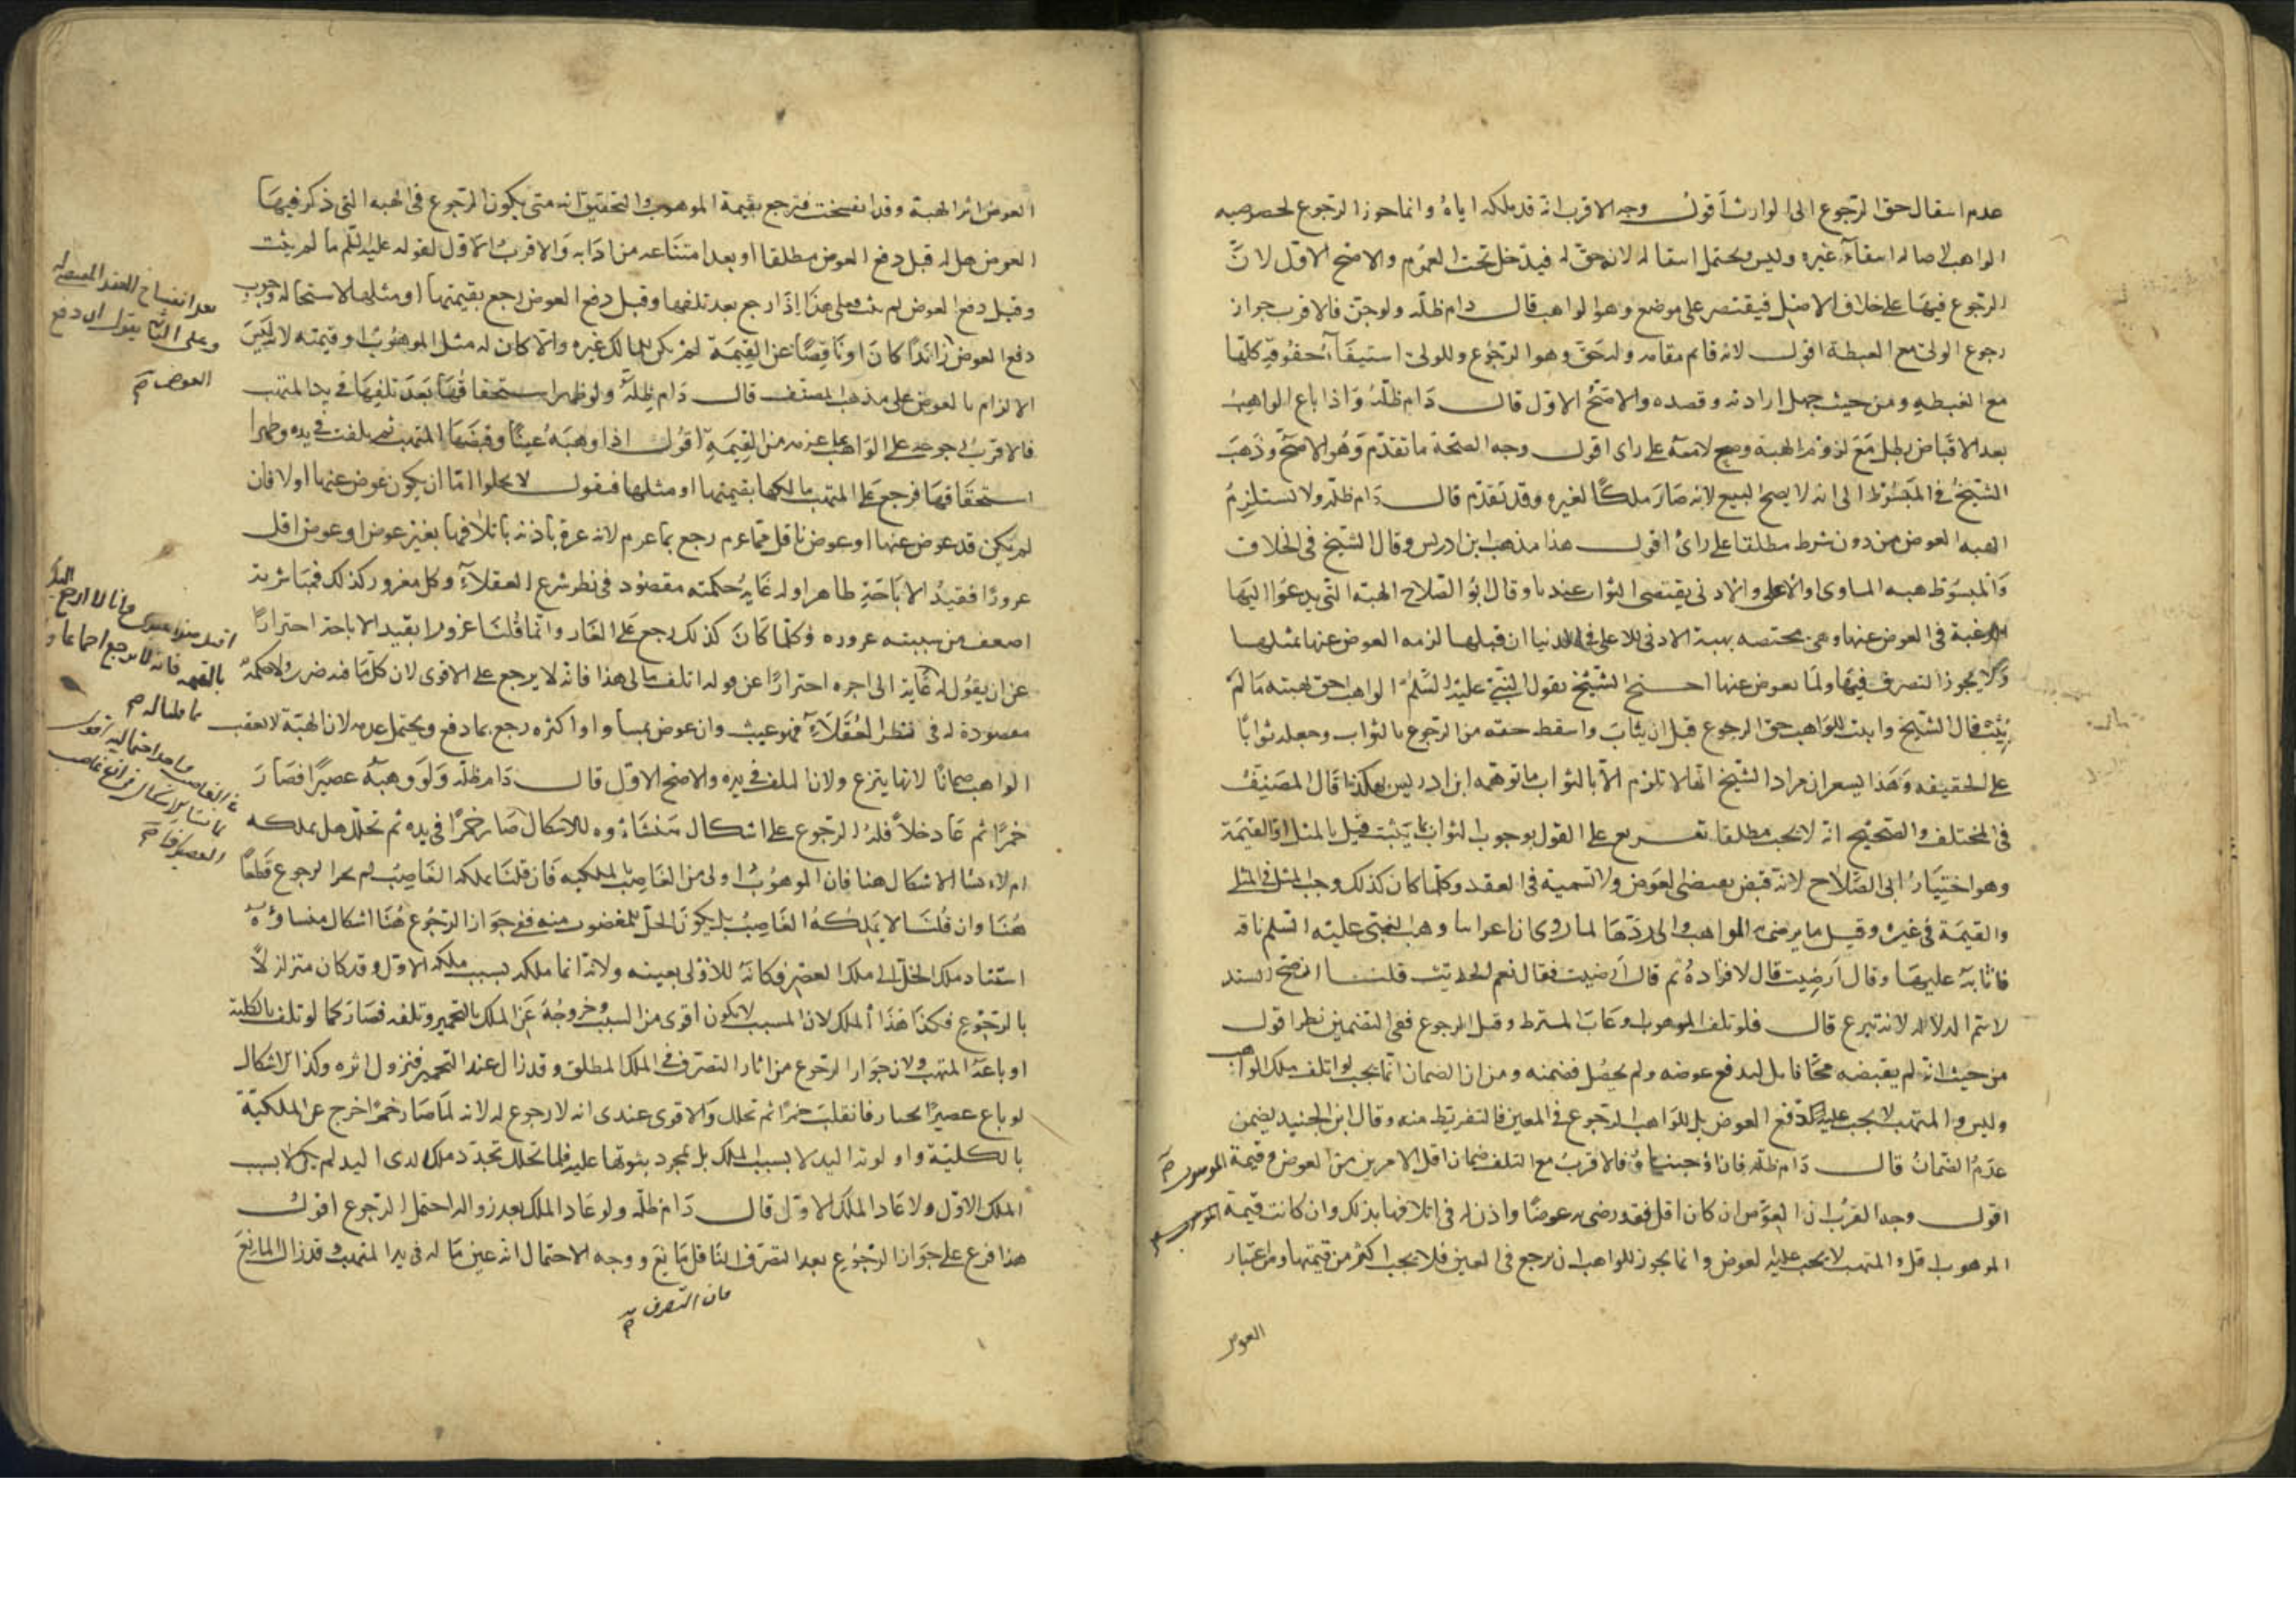 عدم انتقال حق الرجوع الى الوارث اقول وجه الاقرب انه قد ملكه اياه وانما جوز الرجوع لخصوصيه
الواهب لاصاله انتفاء غيره وليس ويحتمل انتقاله لانه حق له فيدخل تحت العموم والاصح الاول لان
الرجوع فيها على خلاف الاصل فيقتصر على موضع وهو الواهب قال دام ظله ولو جن فالاقرب جواز
رجوع الولى مع الغبطة اقول لانه قائم مقامه وله حق وهو الرجوع وللولى استيفاء حقوقه كلها
مع الغبطه ومن حيث جهل ارادته وقصده والاصح الاول قال دام ظله واذا باع الواهب
بعد الاقباض بطل مع لزوم الهبة وصح لا معه على راى اقول وجه الصحة ما تقدم وهو الاصح وذهب
الشيخ فى المبسوط الى انه لا يصح البيع لانه صار ملكا لغيره وقد تقدم قال دام ظله ولا تستلزم
الهبه العوض من دون شرط مطلقا على راى اقول هذا مذهب ابن ادريس وقال الشيخ فى الخلاف
والمبسوط هبه المساوى والاعلى والادنى يقتضى الثواب عندنا وقال ابو الصلاح الهبة التى يدعوا اليها
الرغبة فى العوض عنها وهى مختصه بهبة الادنى للاعلى فى الدنيا ان قبلها لزمه العوض عنها بمثلها
ولا يجوز التصرف فيها ولما يعوض عنها احتج الشيخ بقول النبى عليه السلم الواهب احق بهبته ما لم
يثب قال الشيخ واثبت للواهب حق الرجوع قبل ان يثاب واسقط حقه من الرجوع بالثواب وجعله ثوابا
على الحقيقه وهذا يشعر ان مراد الشيخ انها لا تلزم الا بالثواب ما توهمه ابن ادريس هكذا قال المصنف
فى المختلف والصحيح انه لا يجب مطلقا تفريع على القول بوجوب الثواب بما يثبت قيل بالمثل او القيمة
وهو اختيار ابى الصلاح لانه قبض يقتضى العوض ولا تسمية فى العقد وكلما كان كذلك وجب المثل فى المثلى
والقيمة فى غيره وقيل ما يرضى به الواهب والا ردها لما روى ان اعرابيا وهب النبى عليه السلم ناقه
فاثابه عليها وقال ارضيت قال لا فزاده ثم قال ارضيت فقال نعم الحديث قلنا ان صح السند
لا تتم الدلاله لانه تبرع قال فلو تلف الموهوب او عاب المشترط وقبل الرجوع ففى التضمين نظر اقول
من حيث انه لم يقبضه مجانا بل ليدفع عوضه ولم يحصل فضمنه ومن ان الضمان انما يجب لو اتلف ملك الواهب
وليس والمتهب لا يجب عليه دفع العوض بل للواهب الرجوع فى العين فالتفريط منه وقال ابن الجنيد يضمن
عدم الضمان قال دام ظله فان اوجبناه فالاقرب مع التلف ضمان اقل الامرين من العوض وقيمة الموهوب
اقول وجه القرب ان العوض ان كان اقل فقد رضى به عوضا واذن له فى اتلافها بذلك وان كانت قيمة
الموهوب اقل والمتهب لا يجب عليه العوض وانما يجوز للواهب ان يرجع فى العين فلا يجب اكثر من قيمتها ومن اعتبار
العوض
العوض اثر الهبة وقد انفسخت فيرجع بقيمة الموهوب والتحقيق انه متى يكون الرجوع فى الهبه التى ذكر فيها
العوض هل له قبل دفع العوض مطلقا او بعد امتناعه من ادائه والاقرب الاول لقوله عليه السلم ما لم يثب
وقبل دفع العوض لم يثب فعلى هذا اذا رجع بعد تلفها وقبل دفع العوض رجع بقيمتها او مثلها لاستحاله وجوب
دفع العوض زائدا كان او ناقصا عن القيمة لم يكن للمالك غيره والا كان له مثل الموهوب او قيمته لانه ليس
الالزام بالعوض على مذهب المصنف قال دام ظله ولو ظهر استحقاقها بعد تلفها فى يد المتهب
فالاقرب رجوعه على الواهب بما غرمه من القيمة اقول اذا وهبه عينا وقبضها المتهب ثم تلفت فى يده وظهر
استحقاقها فرجع على المتهب مالكها بقيمتها او مثلها فنقول لا يخلوا اما ان يكون عوض عنها او لا فان
لم يكن قد عوض عنها او عوض باقل مما غرم رجع بما غرم لانه غره باذنه باتلافها بغير عوض او عوض اقل
غرورا فقيد الاباحة ظاهرا وله غاية حكمته مقصود فى نظر شرع العقلاء وكل مغرور كذلك فمباشرته
اضعف من سببته غروره وكلما كان كذلك رجع على الغار وانما قلنا غرورا بقيد الاباحة احترازا
عن ان يقول له غاية الى اخره احترازا عن قوله اتلف مالى هذا فانه لا يرجع على الاقوى لان كلما فيه ضرر ولا حكمة
مقصودة له فى نظر العقلاء فهو عبث وان عوض بمساو او اكثر رجع بما دفع ويحتمل عدمه لان الهبة لا تعقب
الواهب ضمانا لانها تبرع ولان التلف فى يده والاصح الاول قال دام ظله ولو وهبه عصيرا فصار
خمرا ثم عاد خلا فله الرجوع على اشكال منشاؤه للاشكال صار خمرا فى يده ثم تخلل هل يملكه
ام لا الاشكال هنا فان الموهوب اولى من الغاصب بالملكيه فان قلنا يملكه الغاصب لم يجز الرجوع قطعا
هنا وان قلنا لا يملكه الغاصب بل يكون الخل للمغصوب منه ففى جواز الرجوع هنا اشكال منشاؤه
استناد ملك الخل الى ملك العصير فكانه للاول بعينه ولانه انما ملكه بسبب ملكه الاول وقد كان متزلزلا
بالرجوع فكذا هذا الملك لان المسبب لا يكون اقوى من السبب وخروجه عن الملك بالتخمير وتلفه فصار كما لو تلف بالكلية
او باعه المتهب ولان جواز الرجوع من اثار التصرف فى الملك المطلق وقد زال عند التخمير فتزول اثره وكذا الاشكال
لو باع عصيرا بخيار فانقلب خمرا ثم تخلل والاقوى عندى انه لا رجوع له لانه لما صار خمرا خرج عن الملكية
بالكلية واولوية اليد لا بسبب الملك بل بمجرد ثبوتها عليه فلما تخلل تجدد ملك لذى اليد لم يكن لا بسبب
الملك الاول ولا عاد الملك الاول قال دام ظله ولو عاد الملك بعد زواله احتمل الرجوع اقول
هذا فرع على جواز الرجوع بعد التصرف الناقل مانع ووجه الاحتمال انه عين ماله فى يد المتهب وقد زال المانع
فان التصرف
بعد انفساخ العقد المقتضى له
وعلى الثانى يقول ان دفع
العوض صح